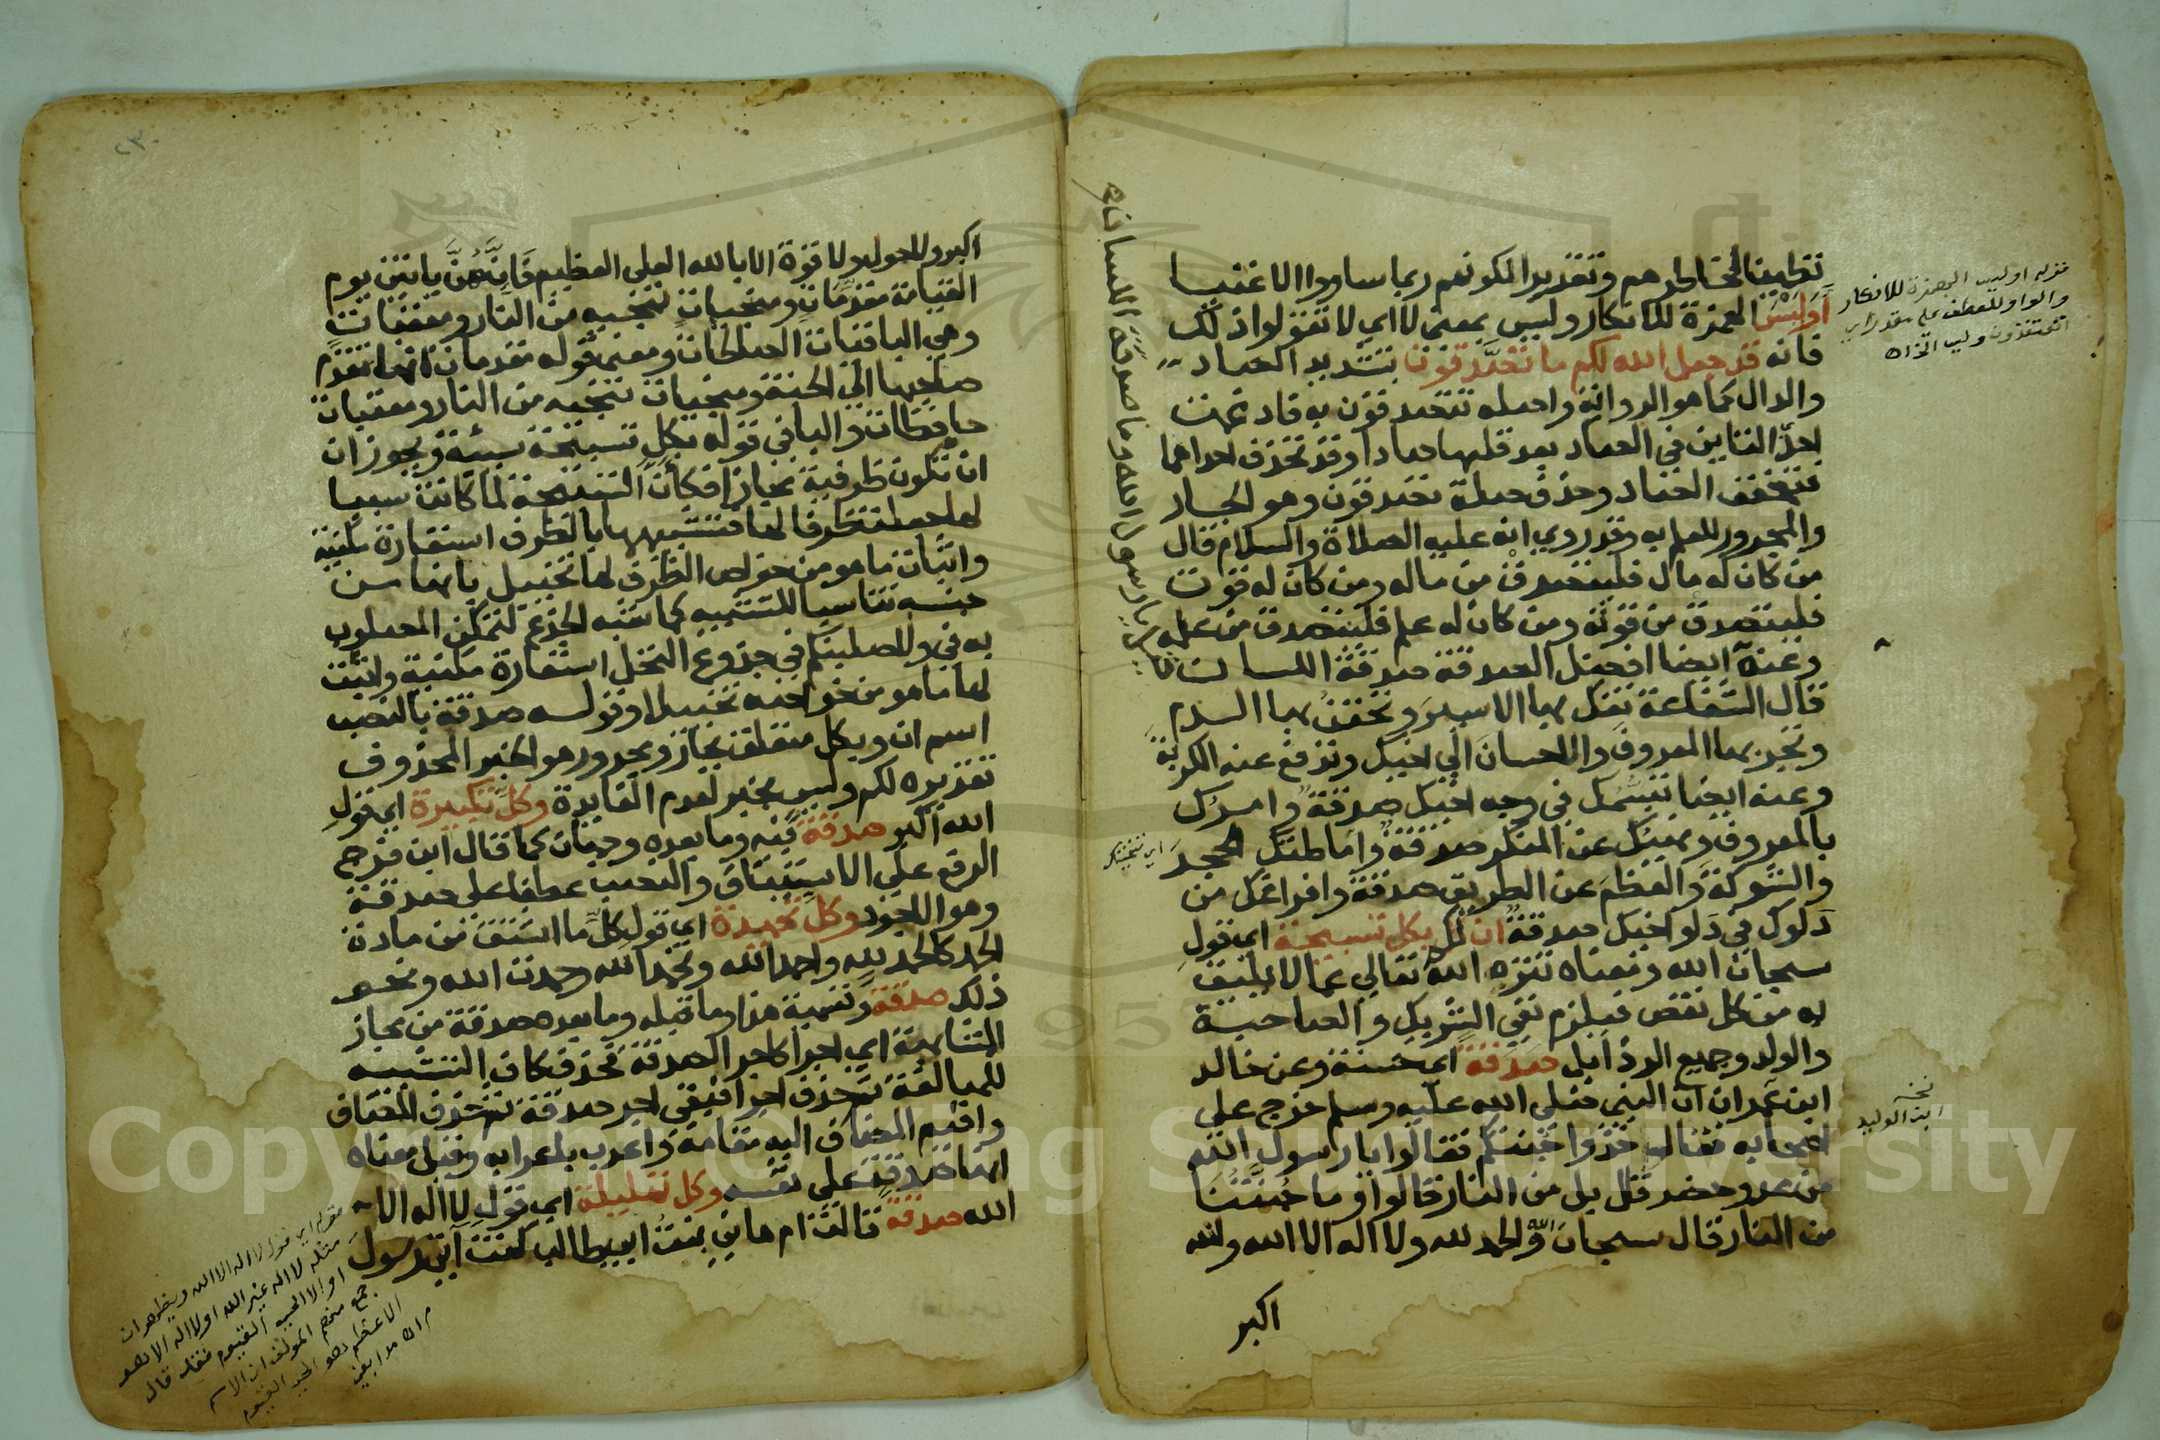 تطييبا لخاطرهم وتقديرا لكونهم ربما ساووا الاغنيا
أوليس الهمزة للانكار وليس بمعنى لا اي لا تقولوا ذلك
فانه قد جعل الله لكم ما تصدقون بتشديد الصاد
والدال كما هو الرواية واصله تتصدقون به فادغمت
احد التاين في الصاد بعد قلبها صادا وقد تحذف احداهما
فتخفف الصاد وحذف صلة تصدقون وهو الجار
والمجرور للعلم به وقد روي انه عليه الصلاة والسلام قال
من كان له مال فليتصدق من ماله ومن كان له قوت
فليتصدق من قوته ومن كان له علم فليتصدق من علمه
وعنه ايضا افضل الصدقة صدقة اللسان
قال الشفاعة تفك بها الاسير وتحقن بها الدم
وتجر بها المعروف والاحسان الي اخيك وتدفع عنه الكربة
وعنه ايضا تبسمك في وجه اخيك صدقة وامرك
بالمعروف ونهيك عن المنكر صدقة واماطتك الحجر
والشوكة والعظم عن الطريق صدقة وافراغك من
دلوك في دلو اخيك صدقة ان لكم بكل تسبيحة اي قول
سبحان الله ومعناه تنزه الله تعالي عما لا يليق
به من كل نقص فيلزم نفي الشريك والصاحبة
والولد وجميع الرذايل صدقة اي حسنة وعن خالد
ابن عمران ان النبي صلي الله عليه وسلم خرج علي
اصحابه فقال خذوا جنتكم فقالوا يا رسول الله
من عدو حضر قال بل من النار قالوا وما جنتنا
من النار قال سبحان الله والحمد لله ولا اله الا الله والله
اكبر
قوله اوليس الهمزة للانكار
والواو للعطف علي مقدر اي
اتعتقدون وليس الخ اه
قيل يا رسول الله وما صدقة اللسان
اي تنحيتك
نخـ
ابن الوليد
٢٣
اكبر ولا حول ولا قوة الا بالله العلي العظيم فانهن ياتين يوم
القيامة مقدمات ومنجيات تنجيه من النار ومعقبات
وهي الباقيات الصالحات ومعني قوله مقدمات انها تقدم
صاحبها الي الجنة ومنجيات تنجيه من النار ومعقبات
حافظات والبا في قوله بكل تسبيحة سببية ويجوز ان
ان تكون ظرفية مجازا فكأن التسبيحة لما كانت سببا
لها جعلت ظرفا لها فتشبيهها بالظرف استعارة مكنية
واثبات ما هو من خواص الظرف لها تخييل بانها من
جنسه تناسيا للتشبيه كما شبه الجذع لتمكن المصلوب
به في ولاصلبنكم في جذوع النخل استعارة مكنية واثبت
لها ما هو من خواصه تخييلا وقوله صدقة بالنصب
اسم ان وبكل متعلق بجار ومجرور هو الخبر المحذوف
تقديره لكم وليس بخبر لعدم الفايدة وكل تكبيرة اي قول
الله اكبر صدقة فيه وما بعده وجهان كما قال ابن فرح
الرفع علي الاستيناف والنصب عطفا علي صدقة
وهو الاجود وكل تحميدة اي قول كل ما اشتق من مادة
الحمد كالحمد لله واحمد الله ونحمد الله وحمدت الله ونحو
ذلك صدقة وتسمية هذا وما قبله وما بعده صدقة من مجاز
المشابهة اي اجرا كاجر الصدقة فحذف كاف التشبيه
للمبالغة ثم حذف اجرا فبقي اجر صدقة ثم حذف المضاف
واقيم المضاف اليه مقامه واعرب باعرابه وقيل معناه
انها صدقة علي نفسه وكل تهليلة اي قول لا اله الا
الله صدقة قالت ام هاني بنت ابي طالب كنت آتي رسول
قوله اي قول لا اله الا الله ويظهر ان
مثله لا اله غير الله او لا اله الا هو
او الا الحي القيوم فقد قال
جمع منهم المؤلف ان الاسم
الاعظم هو الحي القيوم